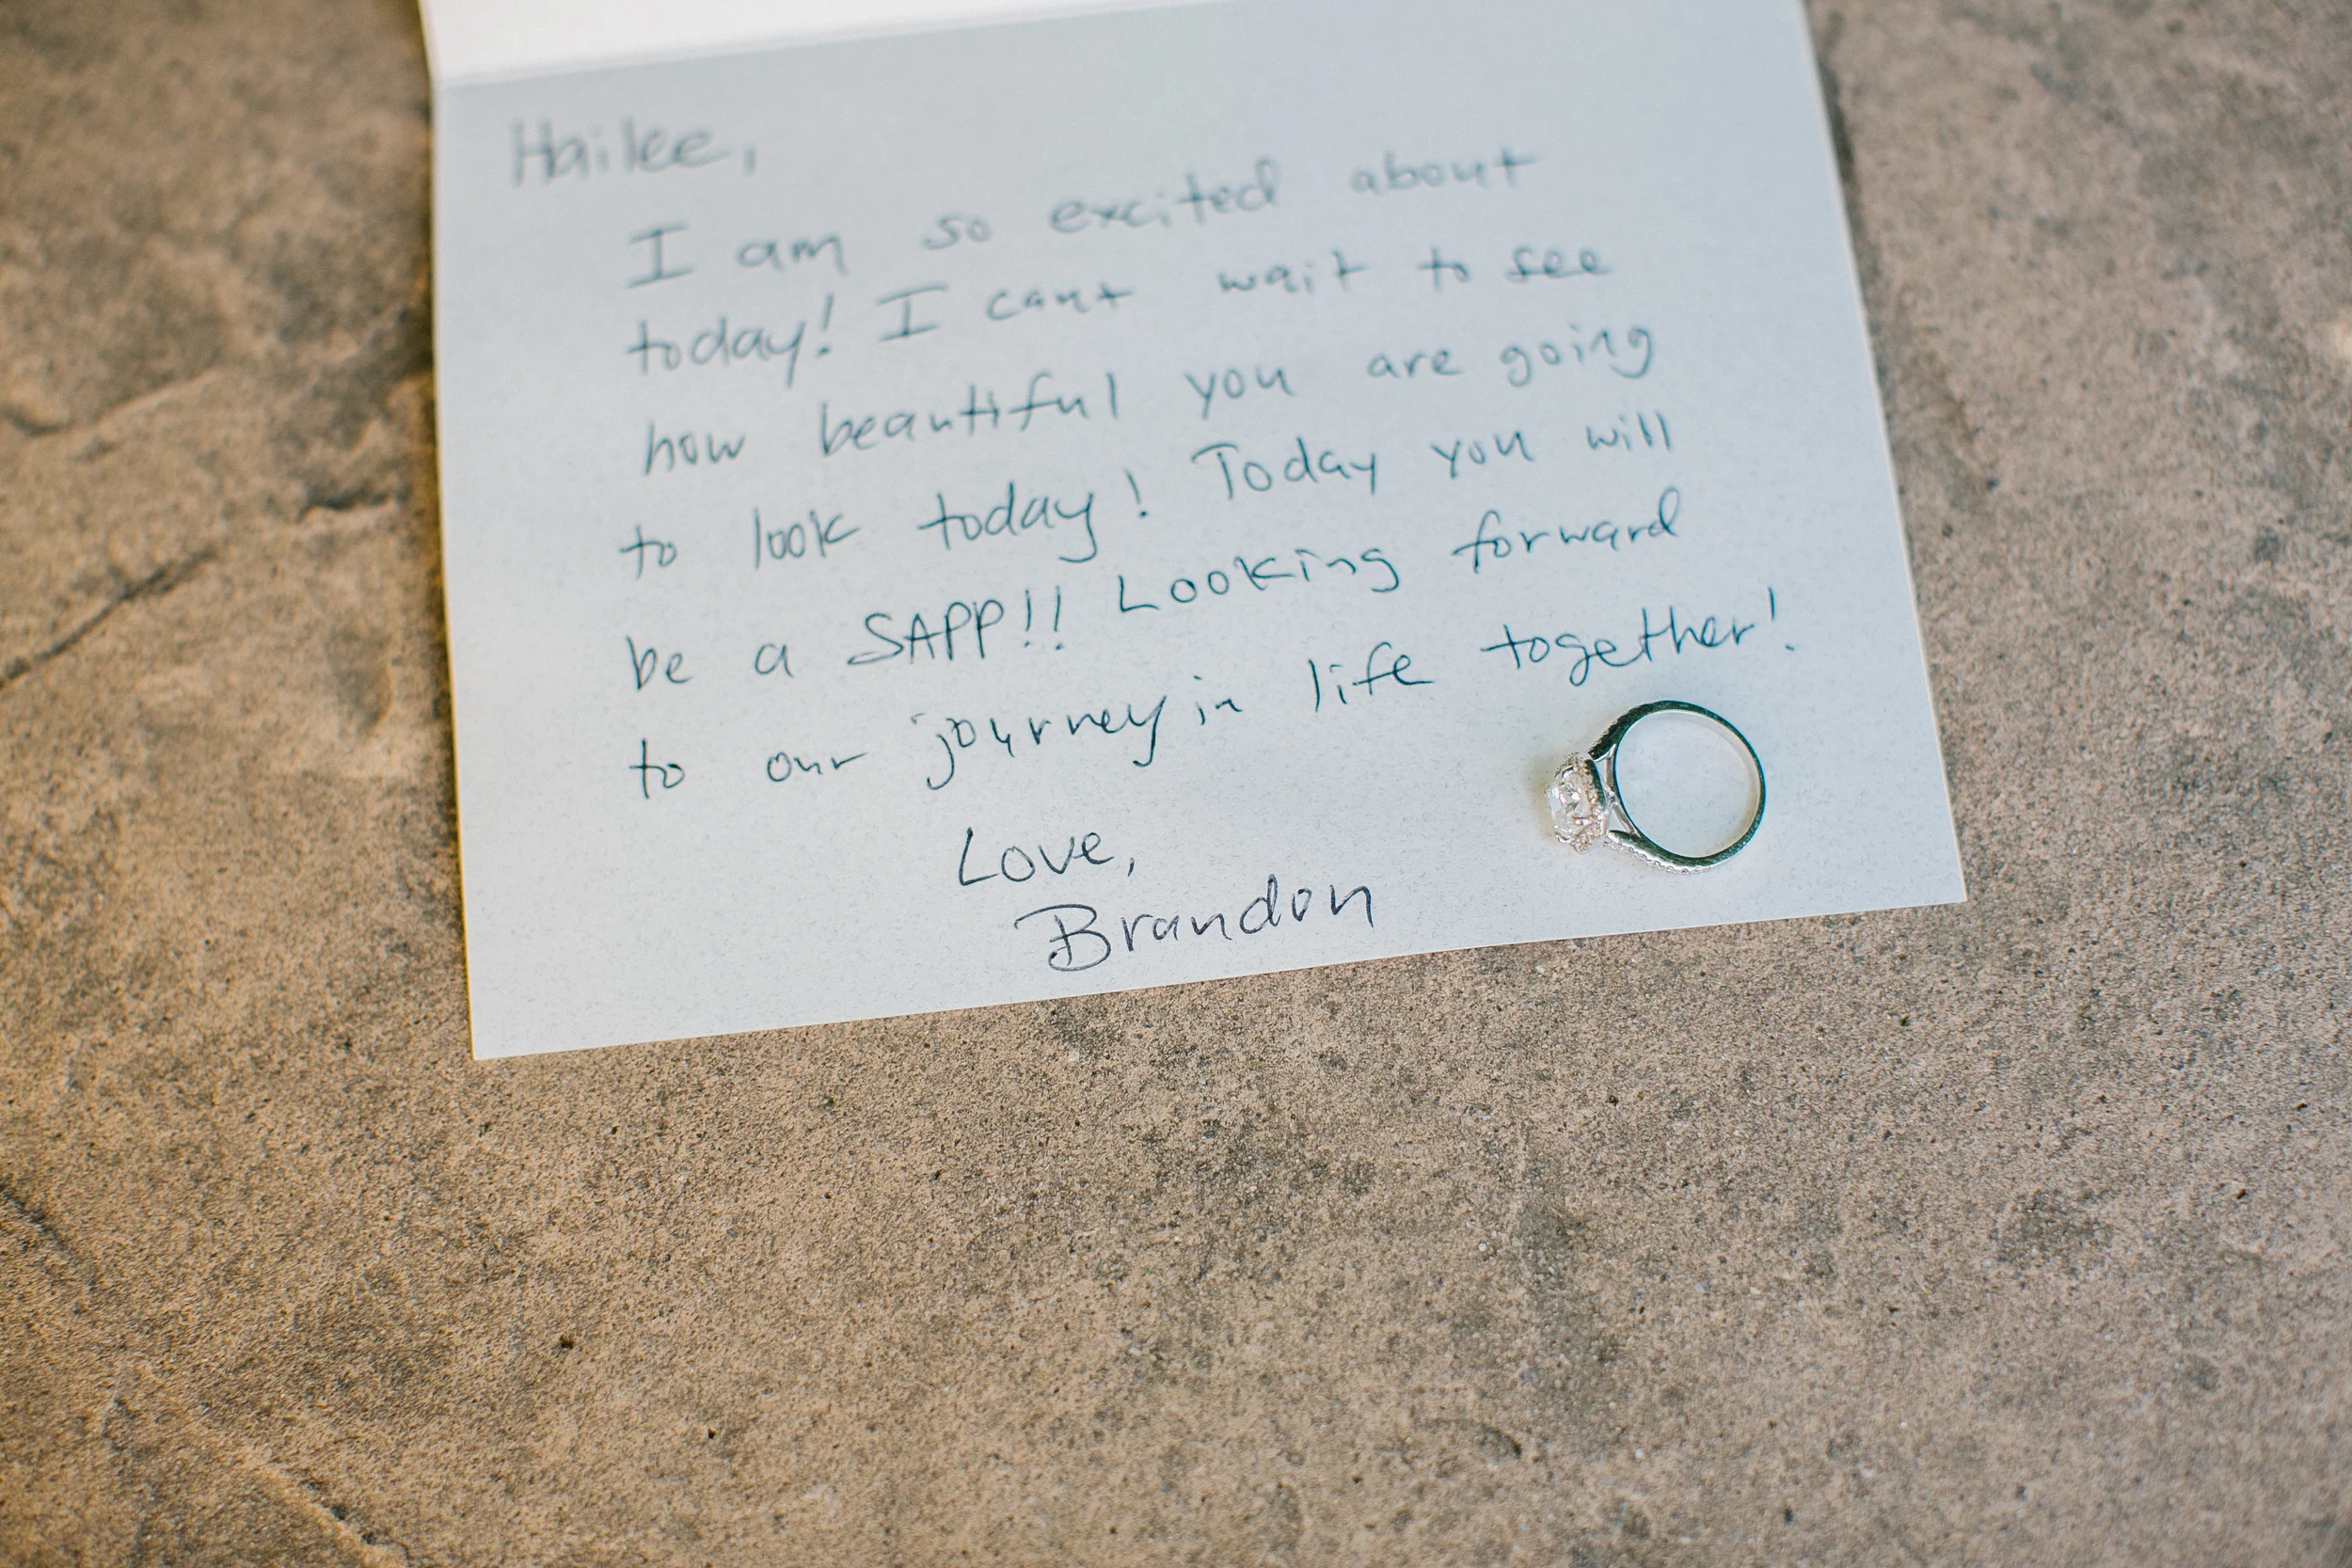 Hailee,
I am so excited about
today! I cant wait to see
how beautiful you are going
to look today! Today you will
be a SAPP!! Looking forward
to our journey in life together!
Love,
Brandon